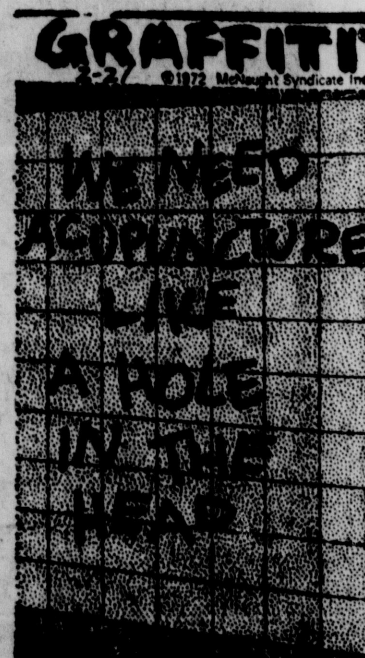 GRAFFITI
2-27 ©1972 McNaught Syndicate Inc
WE NEED
ACUPUNCTURE
LIKE
A HOLE
IN THE
HEAD